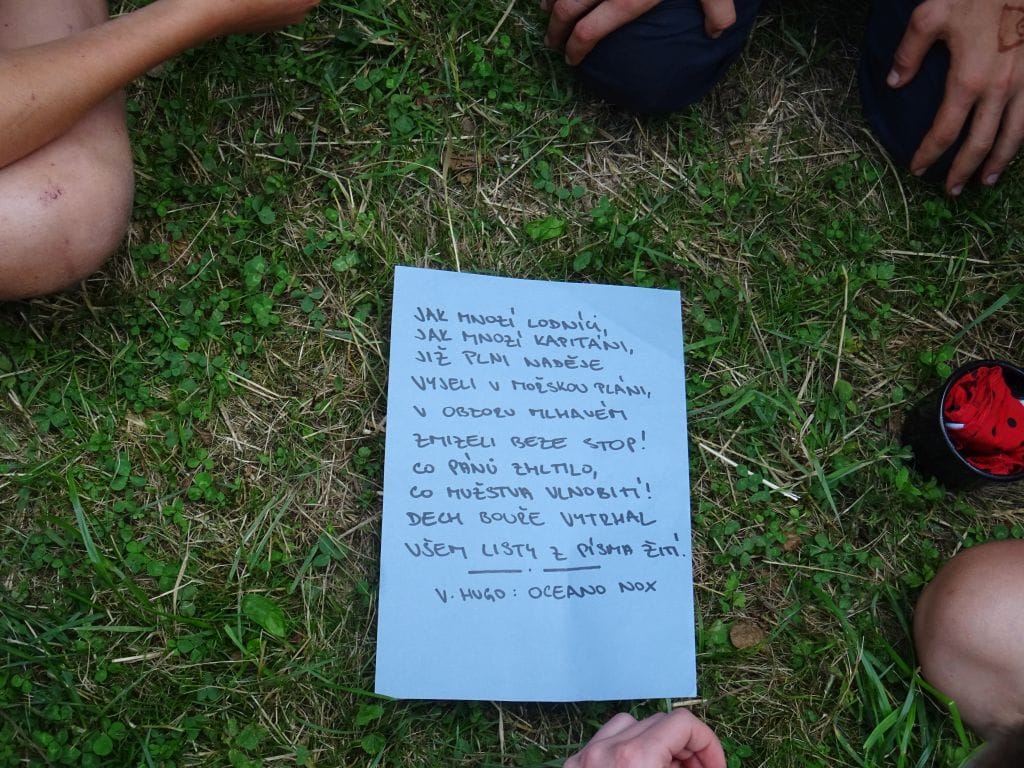 JAK MNOZÍ LODNÍCI,
JAK MNOZÍ KAPITÁNI,
JIŽ PLNI NADĚJE
VYJELI V MOŽSKOU PLÁNI,
V OBZORU MLHAVÉM
ZMIZELI BEZE STOP!
CO PÁNŮ ZHLTILO,
CO MUŽSTVA VLNOBITÍ!
DECH BOUŘE VYTRHAL
VŠEM LISTY Z PÍSMA ŽITÍ.
V. HUGO: OCEANO NOX